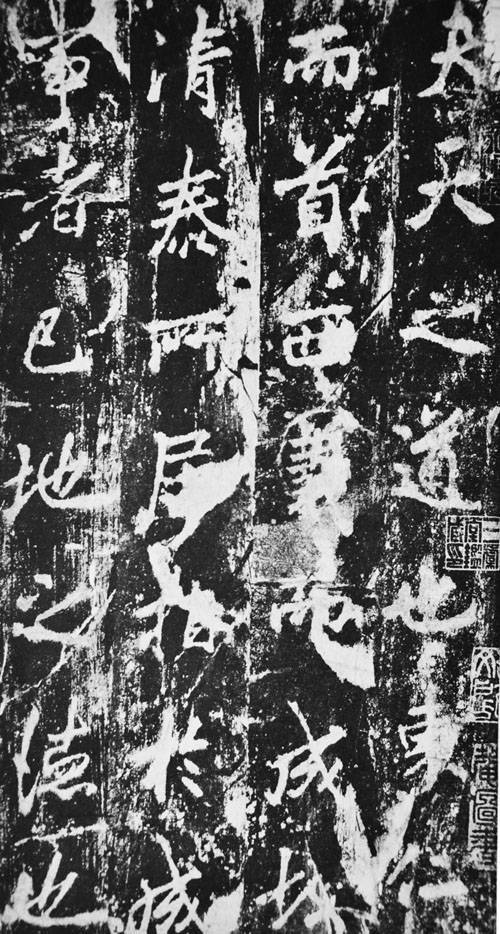 夫天之道也東仁
而首西義而成故
清泰所居指於成
事者已地之德也